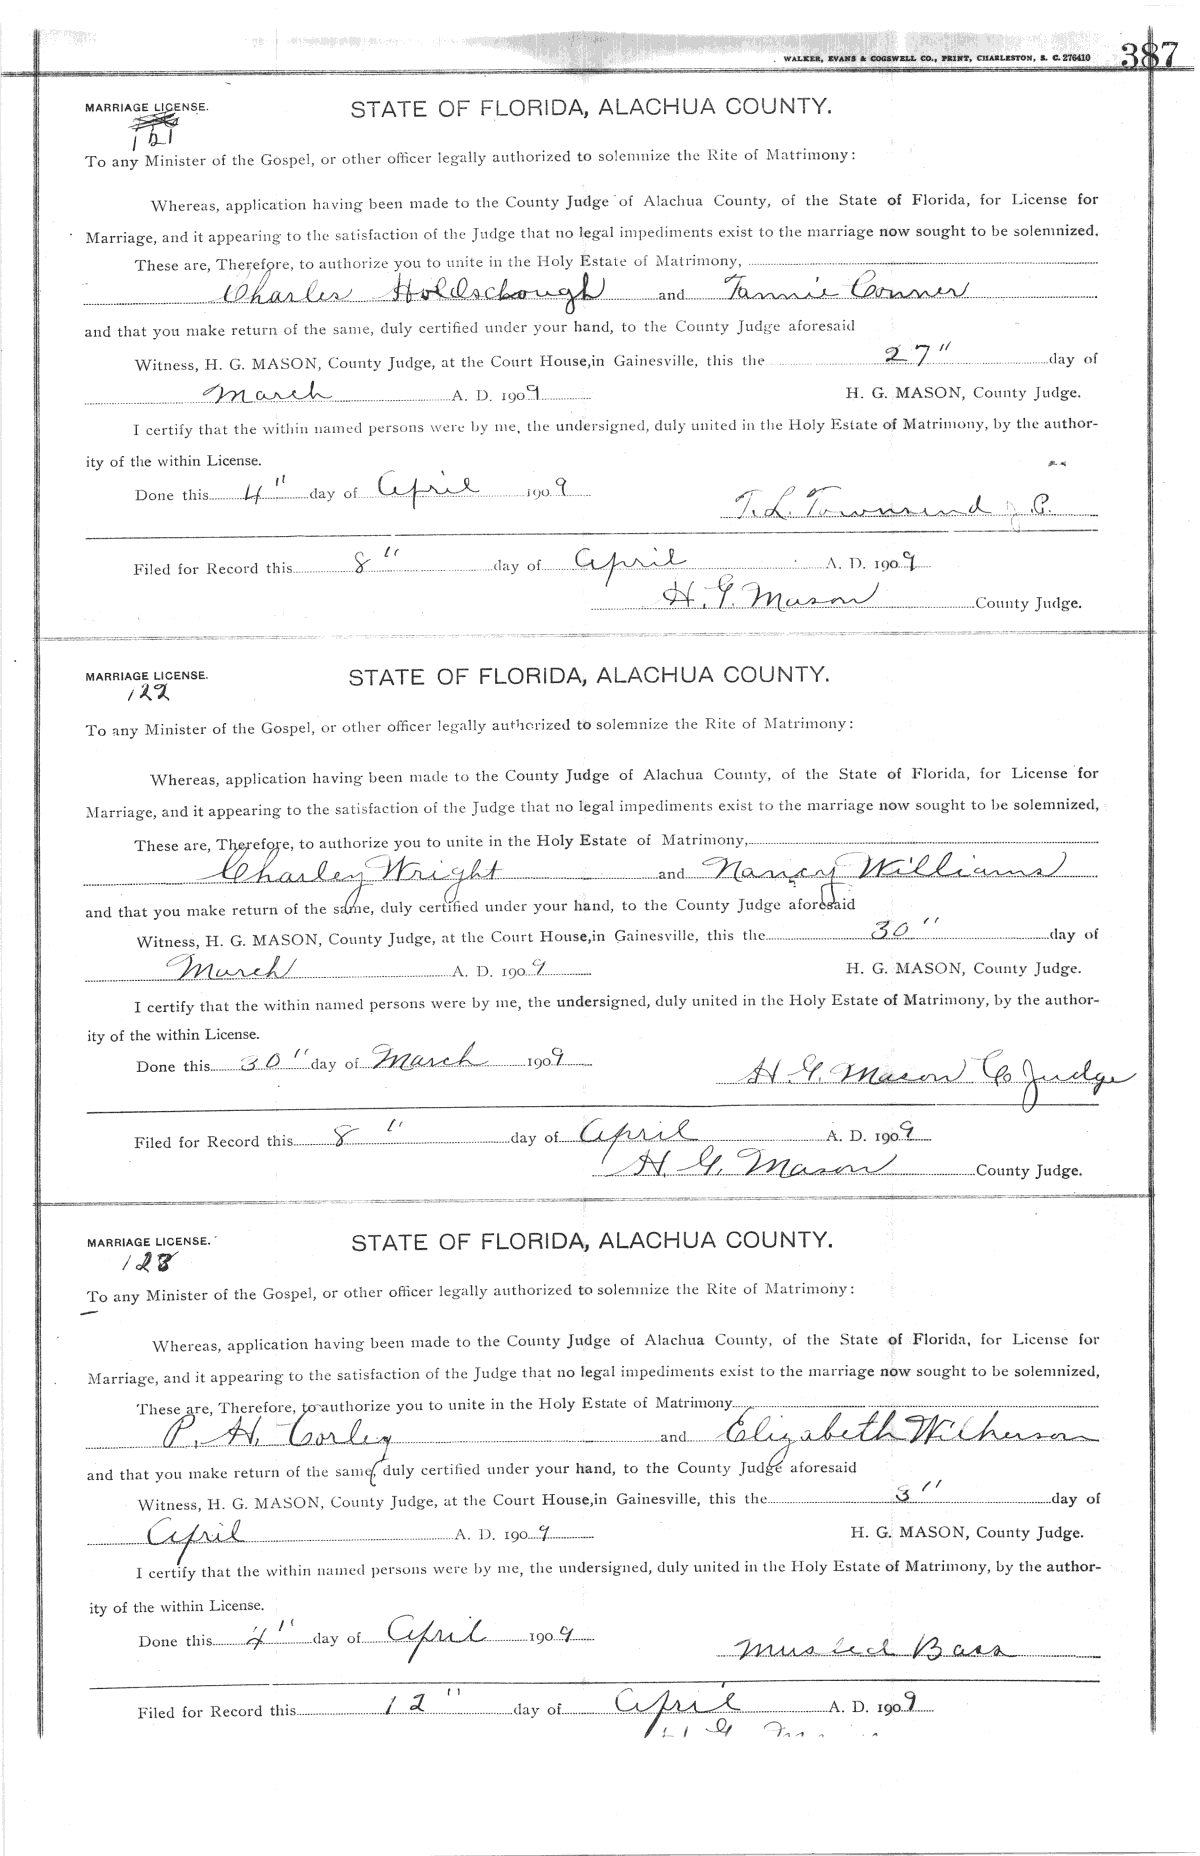 WALKER, EVANS & COGSWELL CO., PRINT, CHARLESTON, S. C. 276410 387
MARRIAGE LICENSE. STATE OF FLORIDA, ALACHUA COUNTY.
121
To any Minister of the Gospel, or other officer legally authorized to solemnize the Rite of Matrimony:
Whereas, application having been made to the County Judge of Alachua County, of the State of Florida, for License for
Marriage, and it appearing to the satisfaction of the Judge that no legal impediments exist to the marriage now sought to be solemnized.
These are, Therefore, to authorize you to unite in the Holy Estate of Matrimony,
Charles Holdschough and Fannie Conner
and that you make return of the same, duly certified under your hand, to the County Judge aforesaid
Witness, H. G. MASON, County Judge, at the Court House, in Gainesville, this the 27" day of
March A. D. 1909 H. G. MASON, County Judge.
I certify that the within named persons were by me, the undersigned, duly united in the Holy Estate of Matrimony, by the author-
ity of the within License.
Done this 4" day of April 1909
T. L. Townsend J. P.
Filed for Record this 8" day of April A. D. 1909
H. G. Mason County Judge.
MARRIAGE LICENSE. STATE OF FLORIDA, ALACHUA COUNTY.
122
To any Minister of the Gospel, or other officer legally authorized to solemnize the Rite of Matrimony:
Whereas, application having been made to the County Judge of Alachua County, of the State of Florida, for License for
Marriage, and it appearing to the satisfaction of the Judge that no legal impediments exist to the marriage now sought to be solemnized,
These are, Therefore, to authorize you to unite in the Holy Estate of Matrimony,
Charley Wright and Nancy Williams
and that you make return of the same, duly certified under your hand, to the County Judge aforesaid
Witness, H. G. MASON, County Judge, at the Court House, in Gainesville, this the 30" day of
March A. D. 1909 H. G. MASON, County Judge.
I certify that the within named persons were by me, the undersigned, duly united in the Holy Estate of Matrimony, by the author-
ity of the within License.
Done this 30" day of March 1909
H. G. Mason Co Judge
Filed for Record this 8" day of April A. D. 1909
H. G. Mason County Judge.
MARRIAGE LICENSE. STATE OF FLORIDA, ALACHUA COUNTY.
123
To any Minister of the Gospel, or other officer legally authorized to solemnize the Rite of Matrimony:
Whereas, application having been made to the County Judge of Alachua County, of the State of Florida, for License for
Marriage, and it appearing to the satisfaction of the Judge that no legal impediments exist to the marriage now sought to be solemnized,
These are, Therefore, to authorize you to unite in the Holy Estate of Matrimony
P. H. Corley and Elizabeth Wilkerson
and that you make return of the same, duly certified under your hand, to the County Judge aforesaid
Witness, H. G. MASON, County Judge, at the Court House, in Gainesville, this the 3" day of
April A. D. 1909 H. G. MASON, County Judge.
I certify that the within named persons were by me, the undersigned, duly united in the Holy Estate of Matrimony, by the author-
ity of the within License.
Done this 4" day of April 1909
Bass
Filed for Record this 12" day of April A. D. 1909